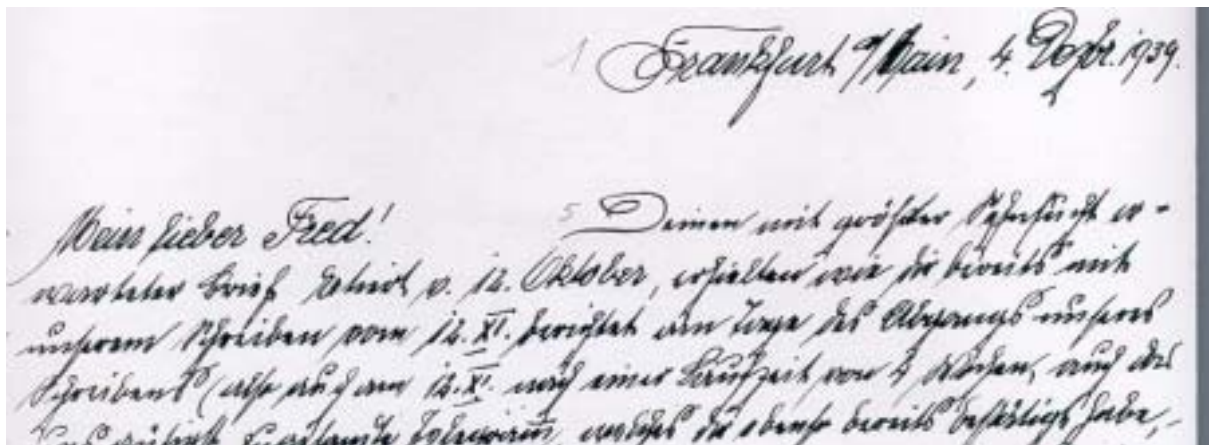 Frankfurt a/Main, 4. Dezbr. 1939.
Mein lieber Fred!
Deinen mit größter Sehnsucht er-
warteter Brief datiert v. 12. Oktober, erhielten wie dir bereits mit
unserem Schreiben vom 12. XI. berichtet am Tage des Abgangs unseres
Schreibens (also auch am 12. XI. nach einer Laufzeit von 4 Wochen, auch das
Telegramm, welches dir ebenso bereits bestätigt habe,